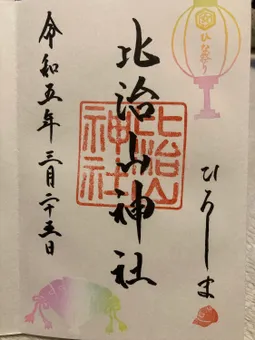 ひな祭り
比治山神社
ひろしま
比治山
神社
令和五年三月二十五日